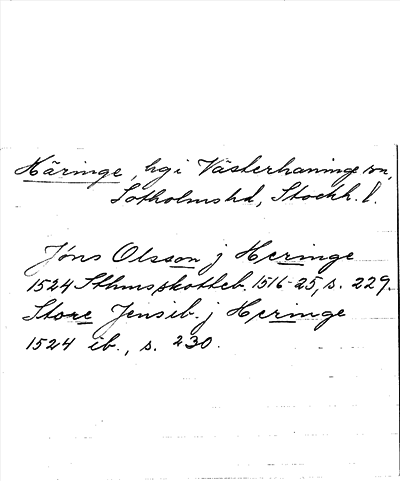 Häringe, hg i Västerhaninge sn,
Sotholms hd, Stockh. l.
Jöns Olsson j Heringe
1524 Sthms skotteb. 1516-25, s. 229.
Store Jens ib. j Heringe
1524 ib., s. 230.